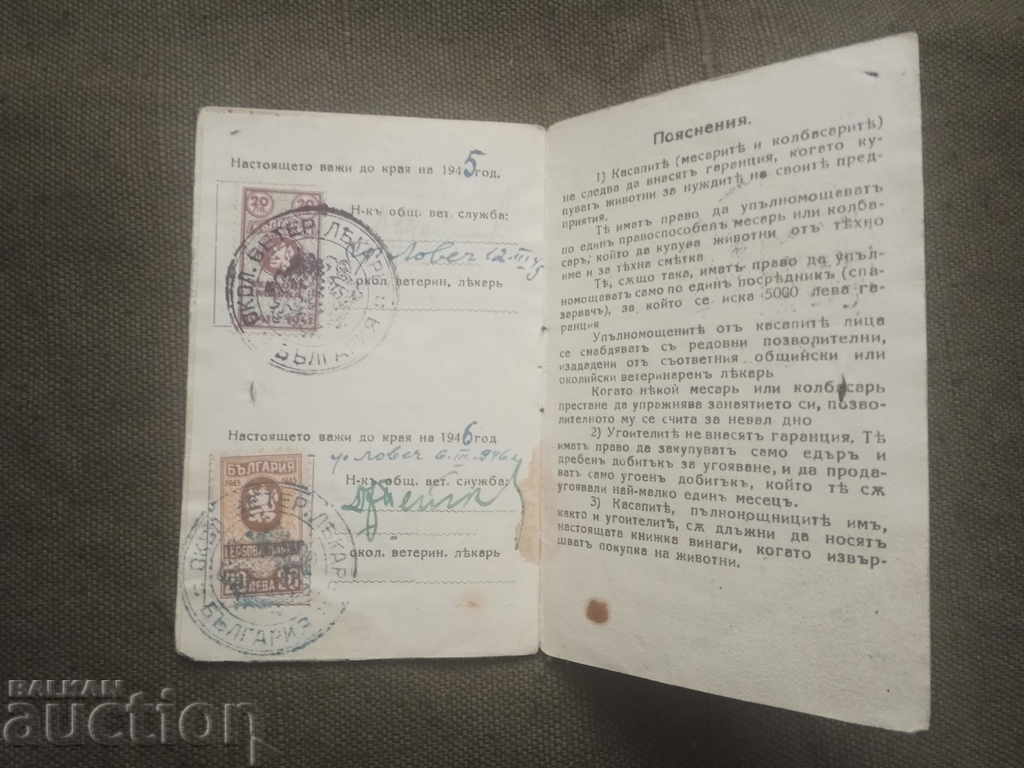 Настоящето важи до края на 1945 год.
20 20
Н-къ общ. вет. служба:
Ловеч 12 III
окол. ветерин. лѣкарь
ОКОЛ. ВЕТЕР. ЛЕКАР
БЪЛГА
Настоящето важи до края на 1946 год
гр Ловеч 6. III. 946
БЪЛГАРИЯ
1945
Н-къ общ. вет. служба:
окол. ветерин. лѣкарь
ЛЕВА
ВЕТЕР. ЛЕКАР
БЪЛГАРИЯ
Пояснения.
1) Касапитѣ (месаритѣ и колбасаритѣ)
не следва да внасятъ гаранция, когато ку-
пуватъ животни за нуждитѣ на своитѣ пред-
приятия.
Тѣ иматъ право да упълномощаватъ
по единъ правоспособенъ месарь или колба-
саръ, който да купува животни отъ тѣхно
име и за тѣхна сметка
Тѣ, сѫщо така, иматъ право да упъл-
номощаватъ само по единъ посрѣдникъ (спа-
заравчъ), за който се иска 5000 лева га-
ранция
Упълномощенитѣ отъ касапитѣ лица
се снабдяватъ съ редовни позволителни,
издадени отъ съответния общински или
околийски ветеринаренъ лѣкарь
Когато нѣкой месарь или колбасарь
престане да упражнява занаятието си, позво-
лителното му се счита за невал дно
2) Угоителѣ не внасятъ гаранция. Тѣ
иматъ право да закупуватъ само едъръ и
дребенъ добитъкъ за угояване, и да прода-
ватъ само угоенъ добитъкъ, който тѣ сѫ
угоявали най-малко единъ месецъ.
3) Касапитѣ, пълнонощницитѣ имъ,
както и угоителитѣ, сѫ длъжни да носятъ
настоящата книжка винаги, когато извър-
шватъ покупка на животни.
BALKAN
auction